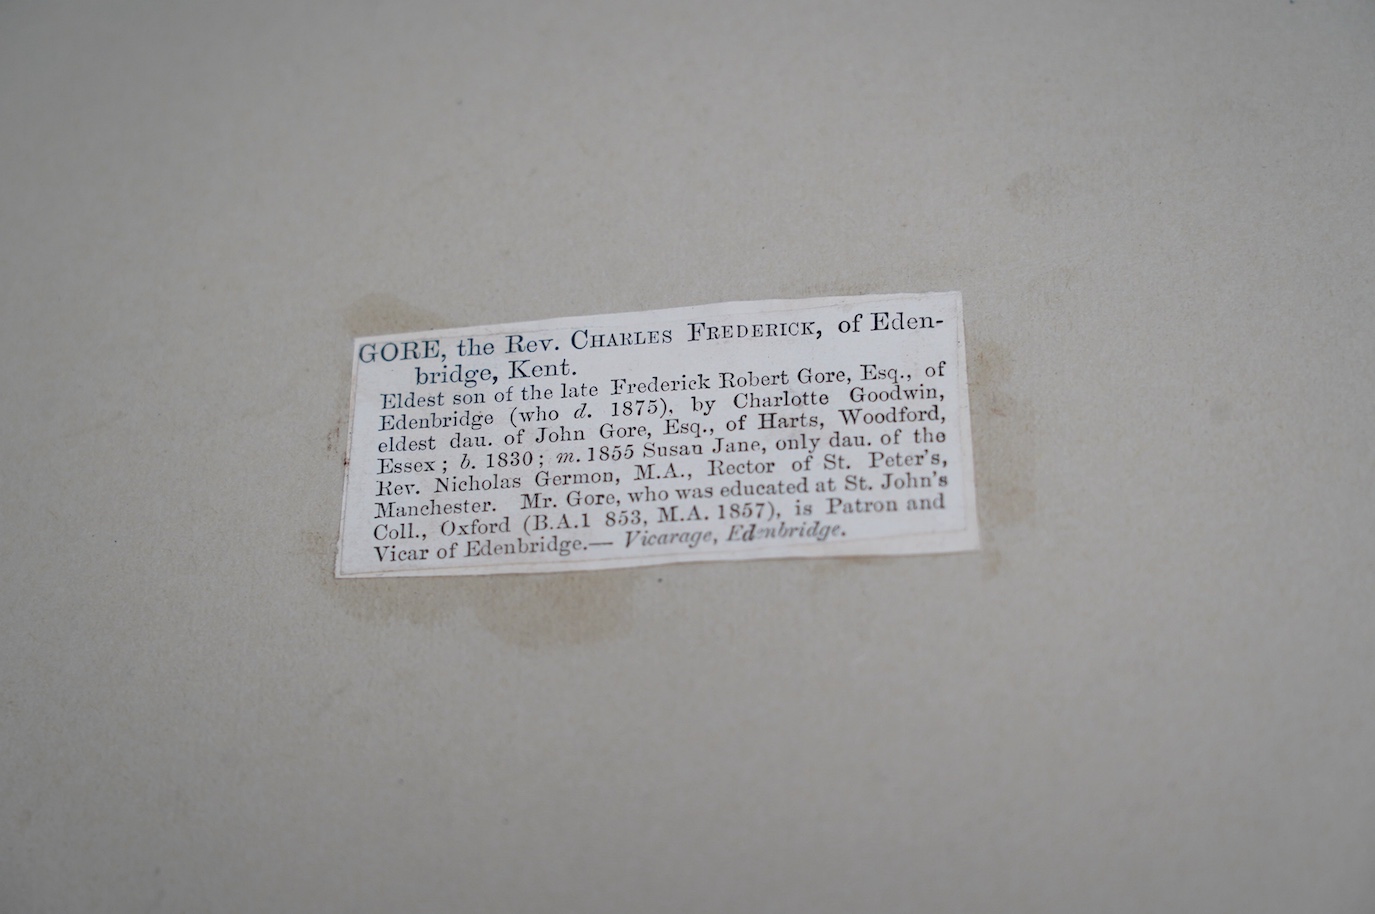 GORE, the Rev. CHARLES FREDERICK, of Eden-
bridge, Kent.
Eldest son of the late Frederick Robert Gore, Esq., of
Edenbridge (who d. 1875), by Charlotte Goodwin,
eldest dau. of John Gore, Esq., of Harts, Woodford,
Essex; b. 1830; m. 1855 Susan Jane, only dau. of the
Rev. Nicholas Germon, M.A., Rector of St. Peter's,
Manchester. Mr. Gore, who was educated at St. John's
Coll., Oxford (B.A.1 853, M.A. 1857), is Patron and
Vicar of Edenbridge.— Vicarage, Edenbridge.